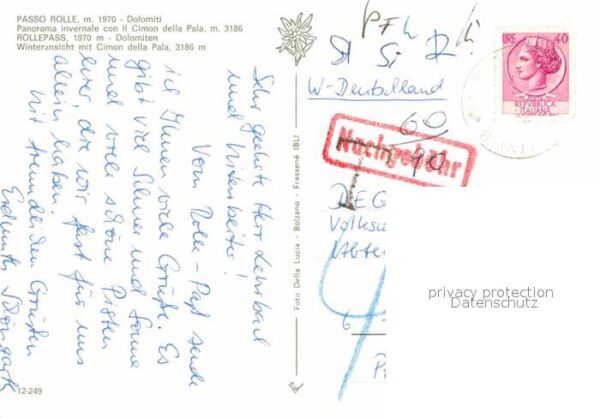 PASSO ROLLE, m. 1970 - Dolomiti
Panorama invernale con il Cimon della Pala, m. 3186
ROLLEPASS, 1970 m - Dolomiten
Winteransicht mit Cimon della Pala, 3186 m
Sehr geehrter Herr
und Mitarbeiter!
Vom Rolle-Paß sende
ich Ihnen viele Grüße. Es
gibt viel Schnee und Sonne
und viele schöne Pisten
hier, die wir fast für uns
allein haben.
Mit freundlichen Grüßen
12-249
Foto Della Lucia - Bolzano - Frassenè (BL)
W-Deutschland
60
90
Nachgebühr
LIRE 40
REPUBBLICA
ITALIANA
Volksw
6
privacy protection
Datenschutz